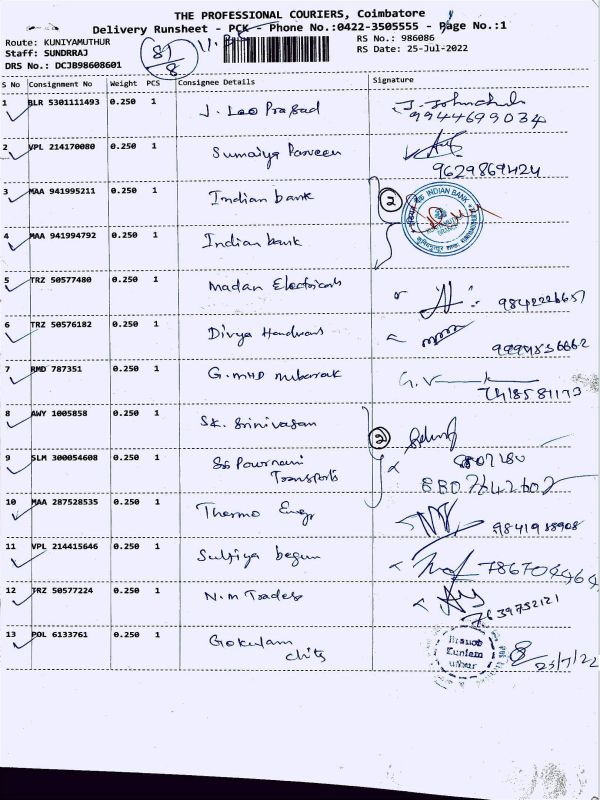 THE PROFESSIONAL COURIERS, Coimbatore
Delivery Runsheet - PCK - Phone No.:0422-3505555 - Page No.:1
Route: KUNIYAMUTHUR RS No.: 986086
Staff: SUNDRRAJ RS Date: 25-Jul-2022
DRS No.: DCJB98608601
S No Consignment No Weight PCS Consignee Details Signature
1 BLR 5301111493 0.250 1 J. Leo Prasad
9944699034
2 VPL 214170080 0.250 1 Sumaiya Parveen
9629869424
3 MAA 941995211 0.250 1 Indian bank 2
INDIAN BANK
4 MAA 941994792 0.250 1 Indian bank
5 TRZ 50577480 0.250 1 Madan Electricals
6 TRZ 50576182 0.250 1 Divya
7 RMD 787351 0.250 1 G. MHD Mubarak
8 AWY 1005858 0.250 1 SK. Srinivasan
9 SLM 300054608 0.250 1 SS Pournami
Transports
8807642602
10 MAA 287528535 0.250 1 Thermo Engg
9841988908
11 VPL 214415646 0.250 1 Sulfiya begum
7867044464
12 TRZ 50577224 0.250 1 N.M Trades
7639752121
13 POL 6133761 0.250 1 Gokulam
chits
25/7/22